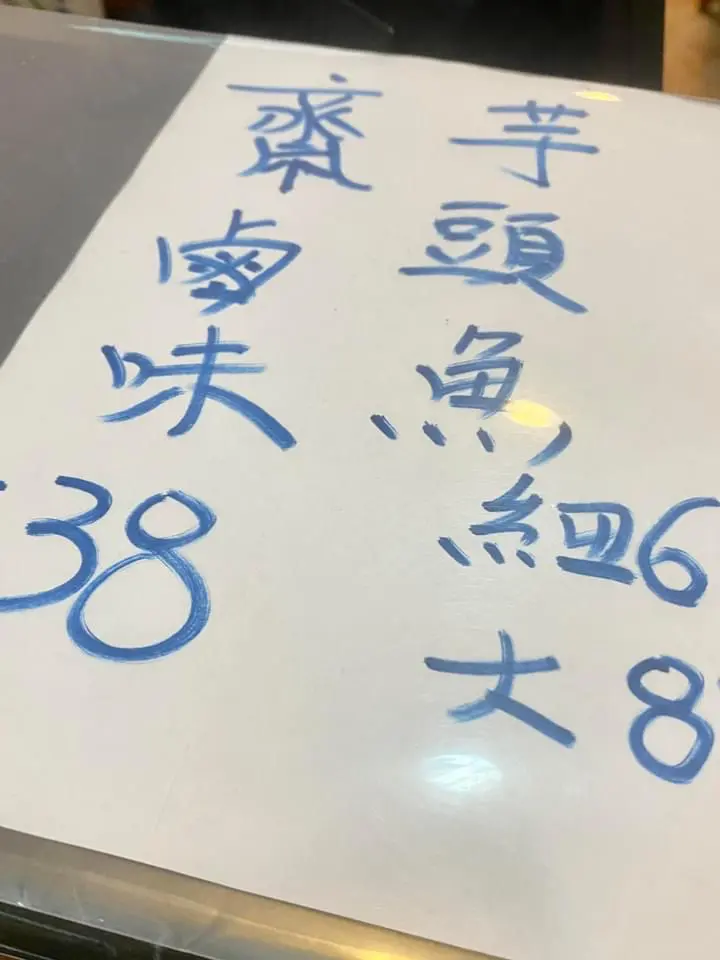 芋頭魚
細6
大8
齋鹵味
38